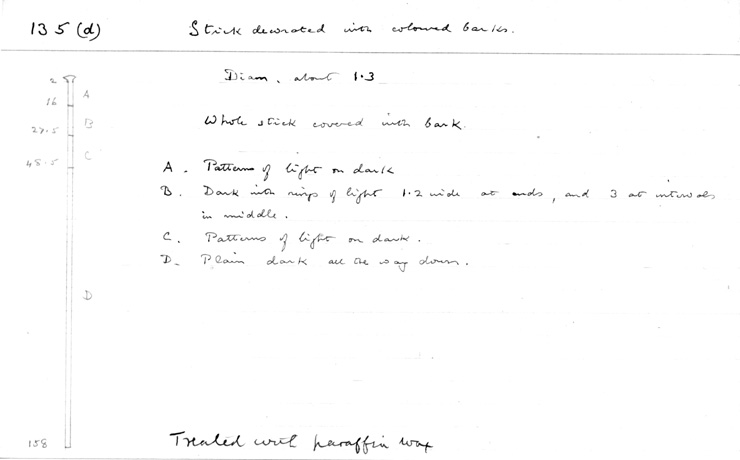 135 (d) Stick decorated with coloured barks.
Diam. about 1.3
Whole stick covered with bark.
2
16
27.5
45.5
158
A
B
C
D
A. Patterns of light on dark
B. Dark with rings of light 1.2 wide at ends, and 3 at intervals
in middle.
C. Patterns of light on dark.
D. Plain dark all the way down.
Treated with paraffin wax